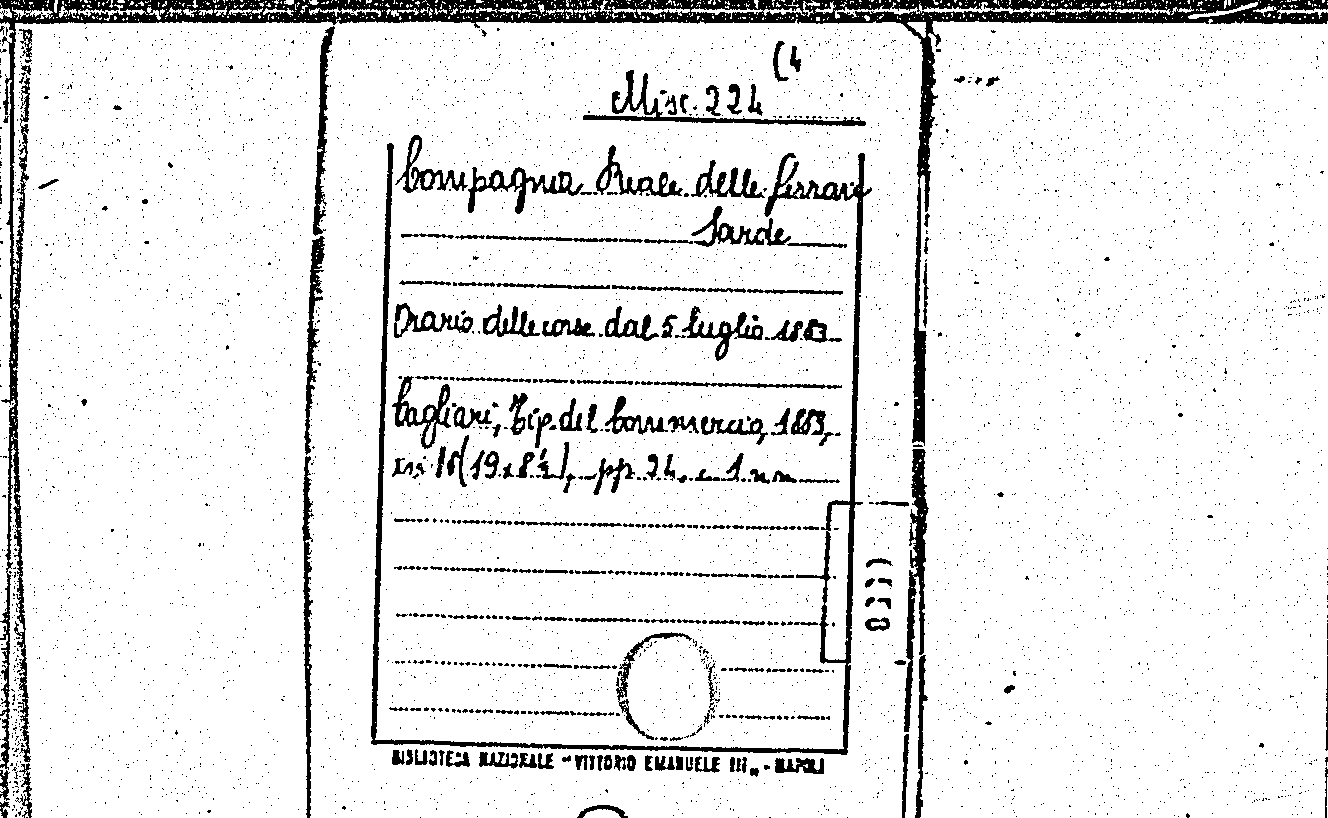 (4
Misc. 224
Compagnia Reale delle ferrovie
Sarde
Orario delle corse dal 5 luglio 1883
Cagliari, Tip. del Commercio, 1883,
in 16 (19x8½), pp. 24. e 1 nn
BIBLIOTECA NAZIONALE "VITTORIO EMANUELE III" - NAPOLI